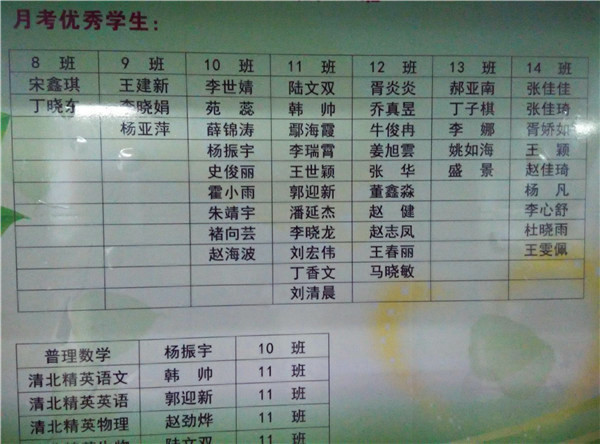 月考优秀学生:
8 班 9 班 10 班 11 班 12 班 13 班 14 班
宋鑫琪 王建新 李世婧 陆文双 胥炎炎 郝亚南 张佳佳
丁晓东 李晓娟 苑 蕊 韩 帅 乔真昱 丁子棋 张佳琦
杨亚萍 薛锦涛 鄢海霞 牛俊冉 李 娜 胥娇如
杨振宇 李瑞霄 姜旭雲 姚如海 王 颖
史俊丽 王世颖 张 华 盛 景 赵佳琦
霍小雨 郭迎新 董鑫淼 杨 凡
朱靖宇 潘延杰 赵 健 李心舒
褚向芸 李晓龙 赵志凤 杜晓雨
赵海波 刘宏伟 王春丽 王雯佩
丁香文 马晓敏
刘清晨
普理数学 杨振宇 10 班
清北精英语文 韩 帅 11 班
清北精英英语 郭迎新 11 班
清北精英物理 赵劲烨 11 班
陆文双 11 班